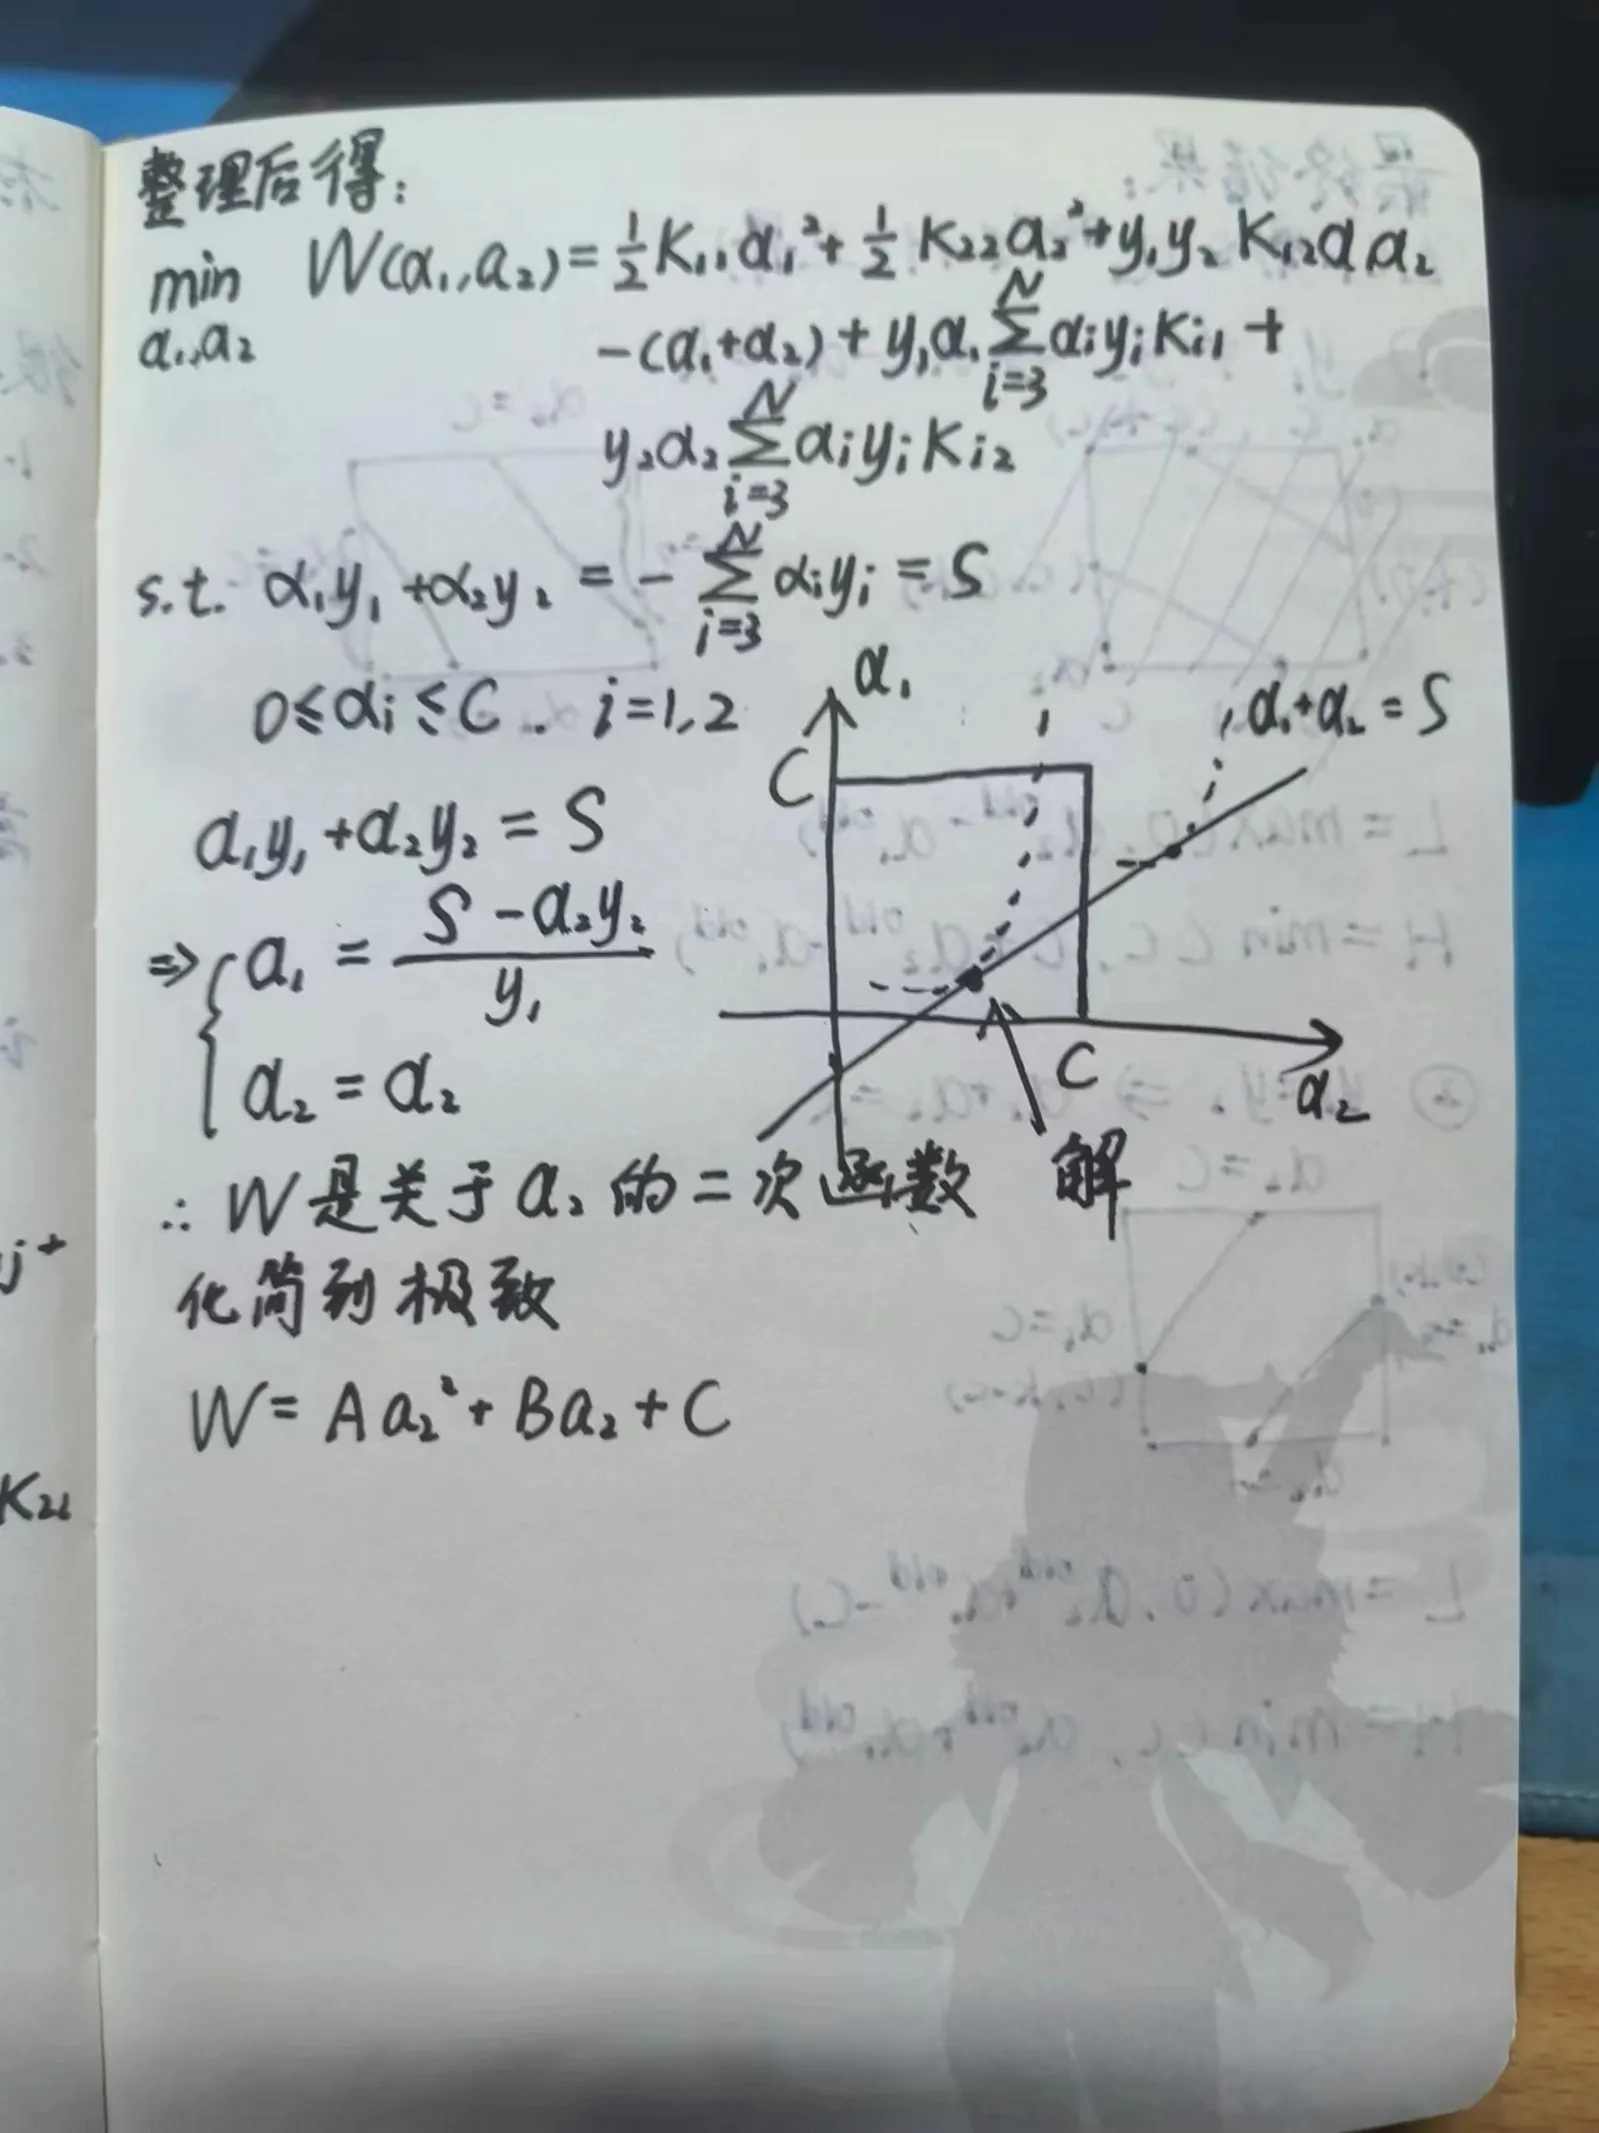 整理后得:
min W(α₁,α₂)=½K₁₁α₁²+½K₂₂α₂²+y₁y₂K₁₂α₁α₂
α₁,α₂ -(α₁+α₂)+y₁α₁∑ᵢ₌₃ᴺαᵢyᵢKᵢ₁+
y₂α₂∑ᵢ₌₃ᴺαᵢyᵢKᵢ₂
s.t. α₁y₁+α₂y₂=-∑ᵢ₌₃ᴺαᵢyᵢ=S
0≤αᵢ≤C. i=1,2
α₁y₁+α₂y₂=S
⇒{α₁=(S-α₂y₂)/y₁
α₂=α₂
α₁
α₁+α₂=S
C
C
α₂
解
∴W是关于α₂的二次函数
化简到极致
W=Aα₂²+Bα₂+C